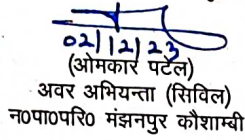 02/12/23
(ओमकार पटेल)
अवर अभियन्ता (सिविल)
न०पा०परि० मंझनपुर कौशाम्बी